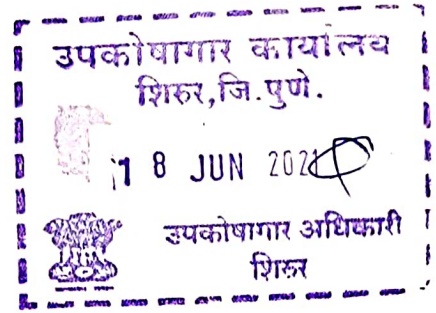 उपकोषागार कार्यालय
शिरुर,जि.पुणे.
18 JUN 202
उपकोषागार अधिकारी
शिरुर